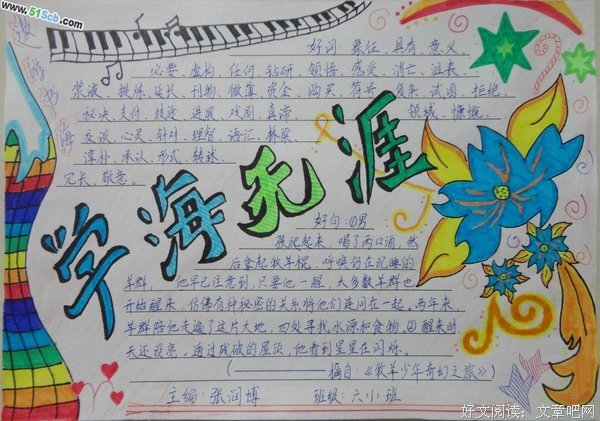 www.51Scb.com
遨游书海
好词：象征、具有、意义、
必要、虚构、任何、钻研、领悟、感受、消亡、沮丧、
浆液、提炼、延长、刊物、微薄、资金、购买、符号、复杂、试图、拒绝、
秘诀、支付、歧途、进展、戏剧、真谛、领域、慷慨、
交谈、心灵、针对、理智、语汇、桥梁、
淳朴、承认、形式、转眸、
冗长、敬意。
学海无涯
好句：①男
孩爬起来，喝了两口酒，然
后拿起牧羊棍，呼唤仍在沉睡的
羊群，他早已注意到，只要他一醒，大多数羊群也
开始醒来，仿佛有种秘密的关系将他们连同在一起。两年来，
羊群陪他走遍了这片大地，四处寻找水源和食物。②醒来时
天还没亮。透过残破的屋顶，他看到星星在闪烁。
（————摘自：《牧羊少年奇幻之旅》）
主编：张润博 班级：六小班
好文阅读：文章吧网